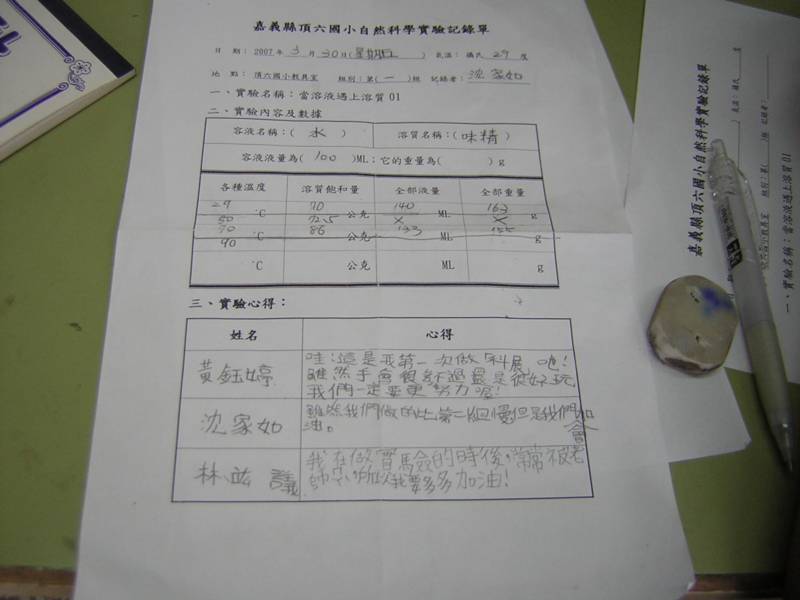 嘉義縣頂六國小自然科學實驗記錄單
日 期： 2007年 3 月 30 日(星期五 ) 氣溫： 攝氏 29 度
地 點： 頂六國小教具室 組別：第( 一 )組 記錄者： 沈家如
一、實驗名稱：當溶液遇上溶質01
二、實驗內容及數據
容液名稱：( 水 ) 溶質名稱：( 味精 )
容液液量為( 100 )ML；它的重量為( )g
各種溫度 溶質飽和量 全部液量 全部重量
29 70 140 163
50 ℃ 72.5 公克 X ML X g
70 86 133 155
90 ℃ 公克 ML g
℃ 公克 ML g
三、實驗心得：
姓名 心得
黃鈺婷
哇!這是我第一次做科展 吔!
雖然手會很 不過還是很好玩
我們一定要更努力喔!
沈家如
雖然我們做的比第二組慢但是我們會加
油。
林 議
我在做實驗的時後，常常被老
師 ，所以我要多多加油!
嘉義縣頂六國小自然科學實驗記錄單
氣溫：攝氏 度
組別：第( )組 記錄者：
一、實驗名稱：當溶液遇上溶質01